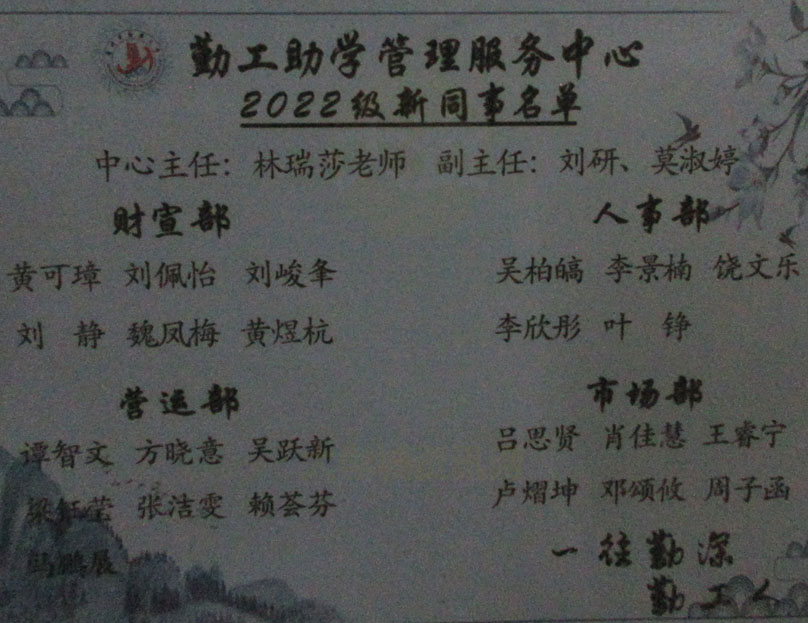 勤工助学管理服务中心
2022级新同事名单
中心主任：林瑞莎老师 副主任：刘研、莫淑婷
财宣部
黄可璋 刘佩怡 刘峻夆
刘 静 魏凤梅 黄煜杭
人事部
吴柏皜 李景楠 饶文乐
李欣彤 叶 铮
营运部
谭智文 方晓意 吴跃新
张洁雯 赖荟芬
马鹏展
市场部
吕思贤 肖佳慧 王睿宁
卢熠坤 邓颂攸 周子函
一往勤深
勤工人